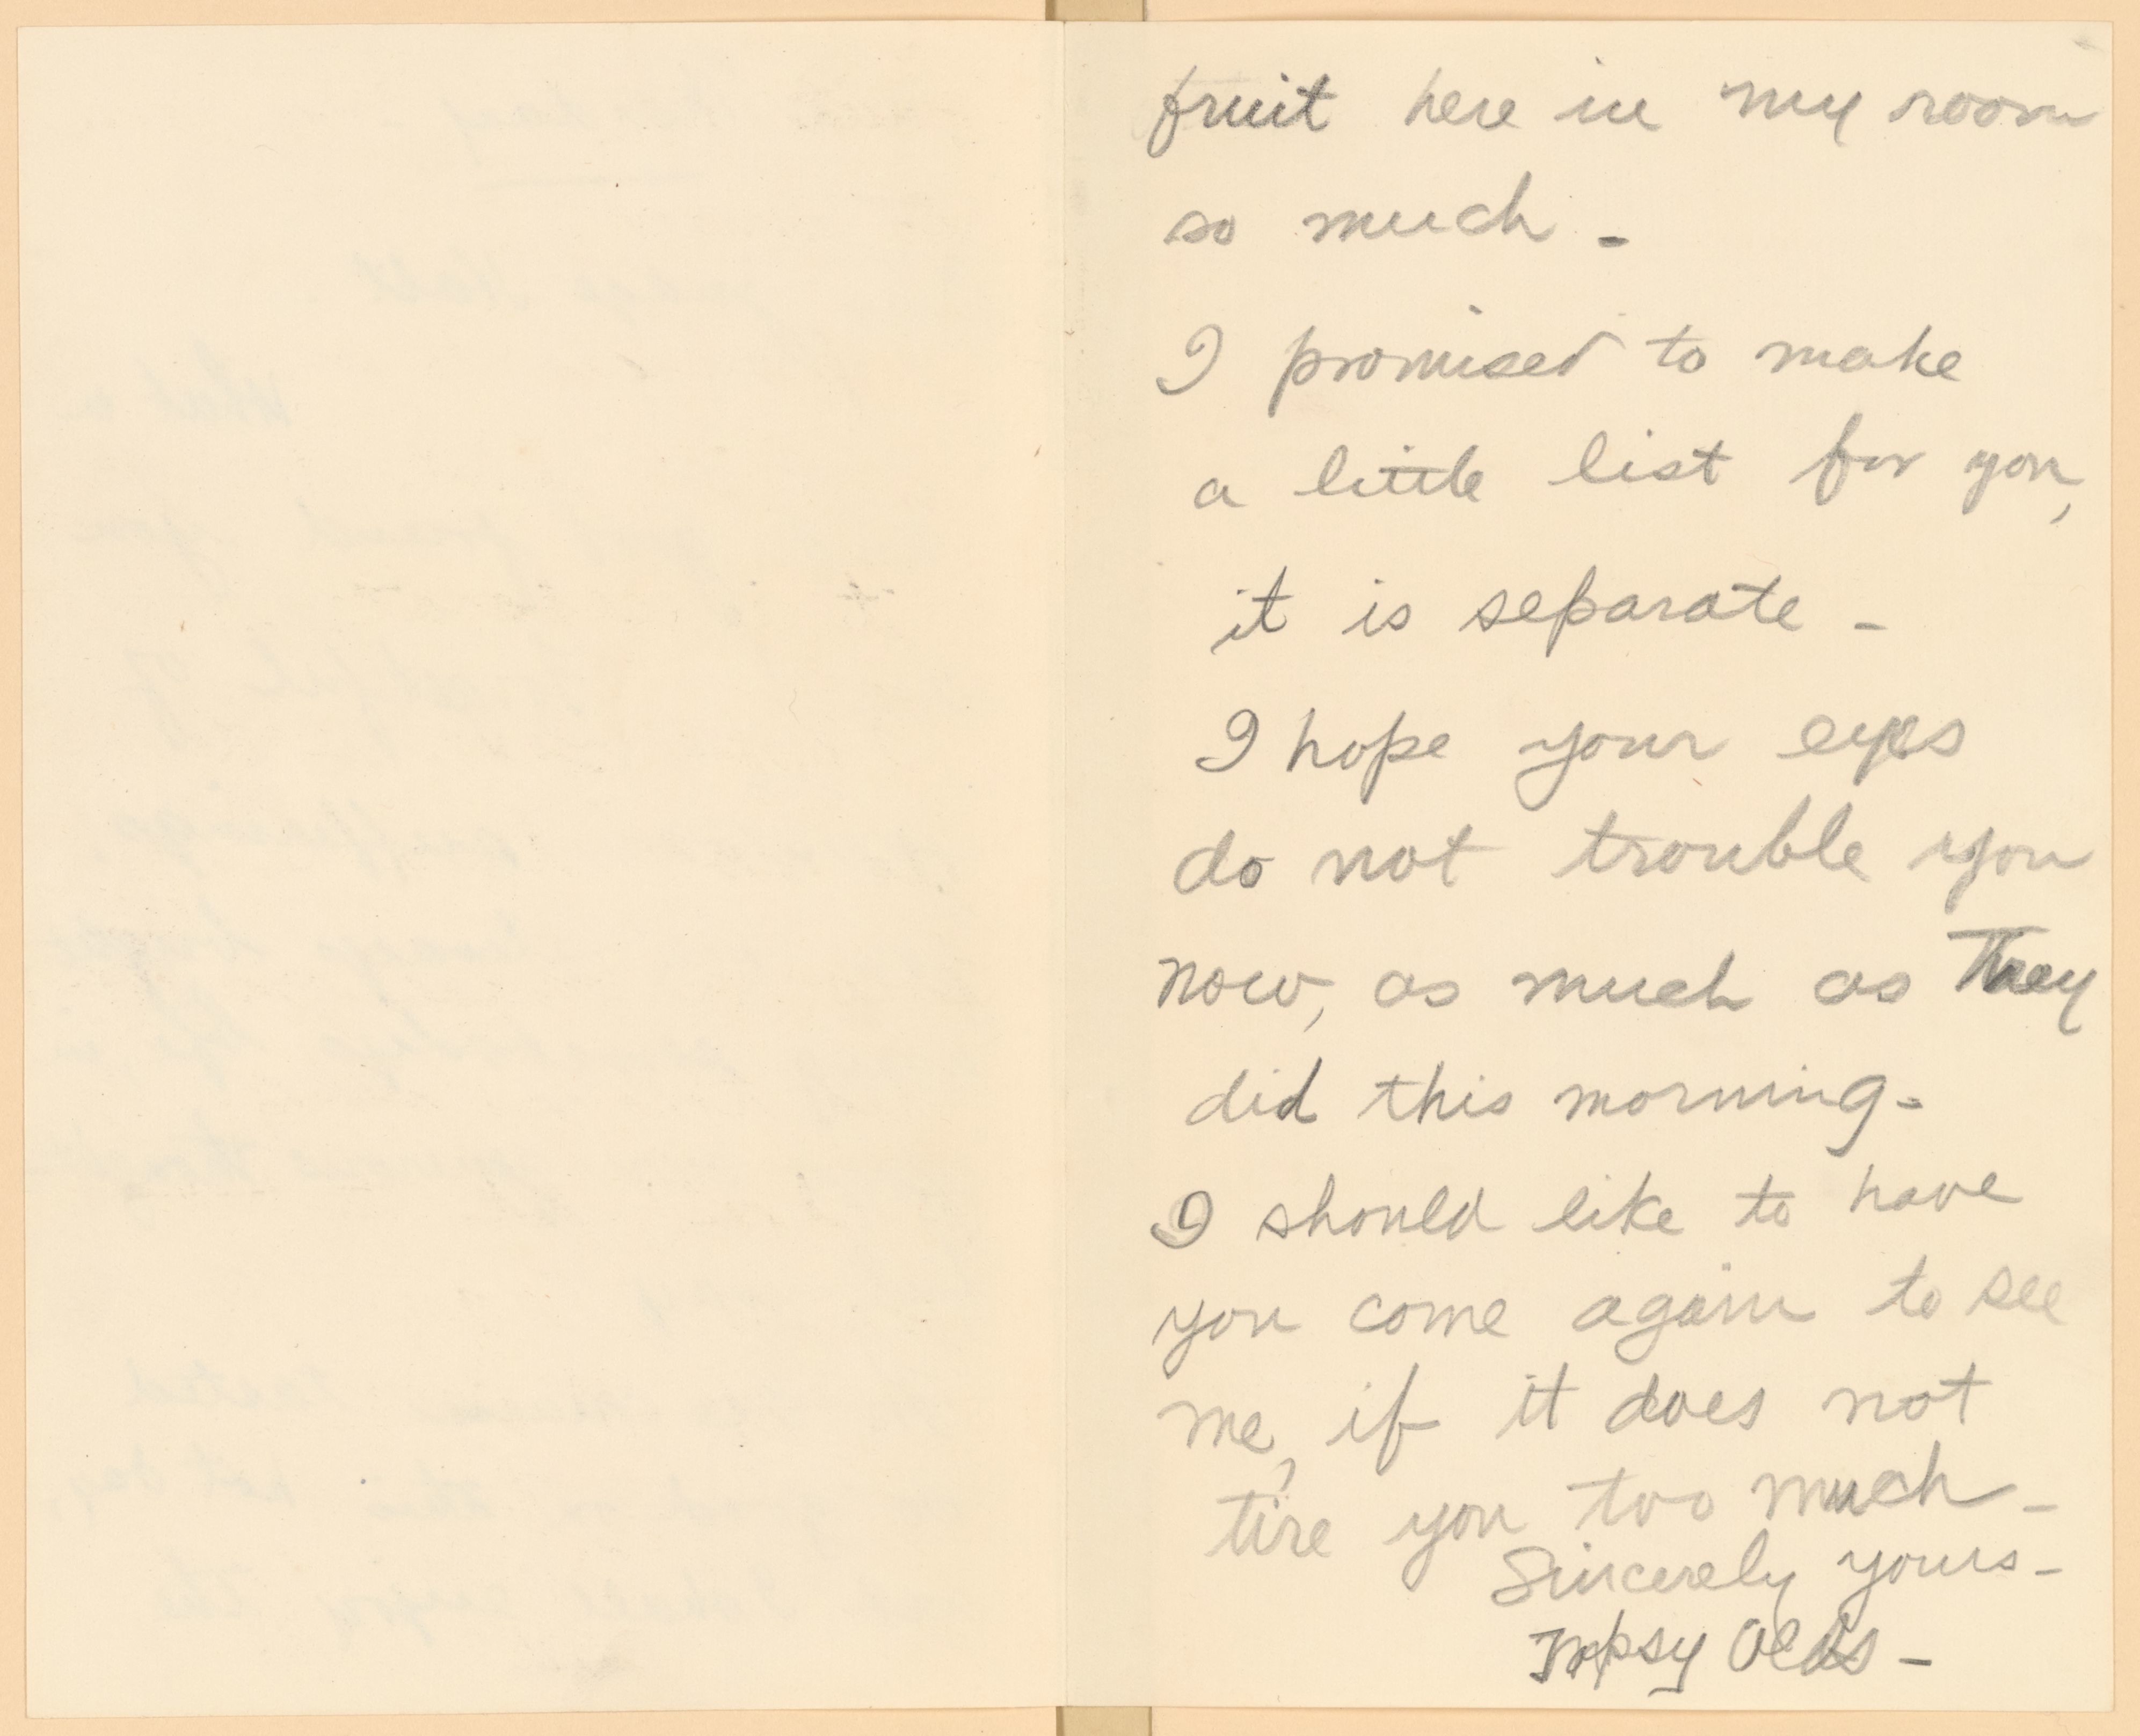 fruit here in my room
so much -
I promised to make
a little list for you,
it is separate -
I hope your eyes
do not trouble you
now, as much as they
did this morning -
I should like to have
you come again to see
me, if it does not
tire you too much -
Sincerely yours -
Topsy Olds -